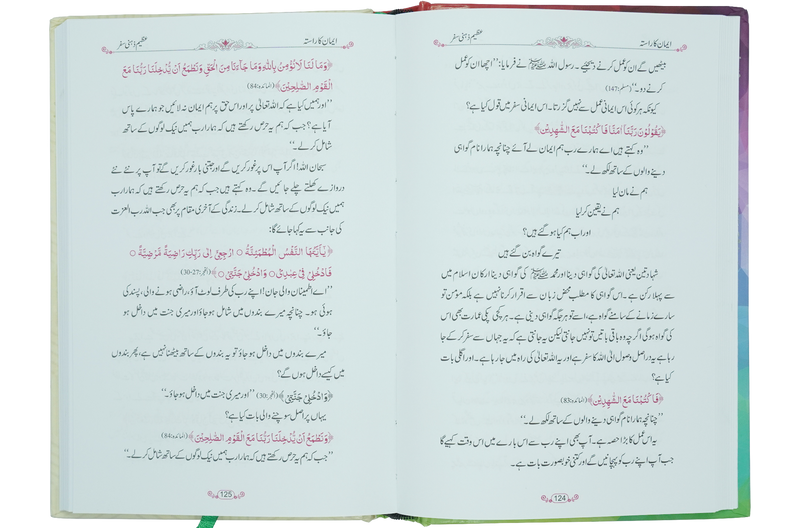 ایمان کا راستہ
عظیم ذہنی سفر
بیٹھیں گے ان کو عمل کرنے دیجیے۔ رسول اللہ ﷺ نے فرمایا: ’’اچھا ان کو عمل
کرنے دو۔‘‘ (مسلم:147)
کیونکہ ہر کوئی اس ایمانی عمل سے نہیں گزرتا۔ اس ایمانی سفر میں قول کیا ہے؟
﴿يَقُوْلُوْنَ رَبَّنَآ اٰمَنَّا فَاكْتُبْنَا مَعَ الشّٰهِدِيْنَ﴾
’’وہ کہتے ہیں اے ہمارے رب ہم ایمان لے آئے چنانچہ ہمارا نام گواہی
دینے والوں کے ساتھ لکھ لے۔‘‘
ہم نے مان لیا
ہم نے یقین کر لیا
اور اب ہم کیا ہو گئے ہیں؟
تیرے گواہ بن گئے ہیں
شہادتین یعنی اللہ تعالیٰ کی گواہی دینا اور محمد ﷺ کی گواہی دینا ارکان اسلام میں
سے پہلا رکن ہے۔ اس گواہی کا مطلب محض زبان سے اقرار کرنا نہیں ہے بلکہ مؤمن تو
سارے زمانے کے سامنے گواہ ہے، اسے تو ہر جگہ گواہی دینی ہے۔ ہر کچی پکی عمارت بھی اس
کی گواہ ہوگی اگرچہ وہ باقی باتیں تو نہیں جانتی لیکن یہ جانتی ہے کہ یہ جہاں سے سفر کر کے جا
رہا ہے یہ دراصل وصول الی اللہ کا سفر ہے اور یہ اللہ تعالیٰ کی راہ میں جا رہا ہے۔ اور اگلی بات
کیا ہے؟
﴿فَاكْتُبْنَا مَعَ الشّٰهِدِيْنَ﴾ (المائدہ:83)
’’چنانچہ ہمارا نام گواہی دینے والوں کے ساتھ لکھ لے۔‘‘
یہ اس عمل کا بڑا حصہ ہے۔ آپ بھی اپنے رب سے اس بارے میں اس وقت کہیے گا
جب آپ اپنے رب کو پہچانیں گے اور کتنی خوبصورت بات ہے۔
124
ایمان کا راستہ
عظیم ذہنی سفر
﴿وَمَا لَنَا لَا نُؤْمِنُ بِاللّٰهِ وَمَا جَآءَنَا مِنَ الْحَقِّ وَنَطْمَعُ اَنْ يُّدْخِلَنَا رَبُّنَا مَعَ
الْقَوْمِ الصّٰلِحِيْنَ﴾ (المائدہ:84)
’’اور ہمیں کیا ہے کہ اللہ تعالیٰ پر اور اس حق پر ہم ایمان نہ لائیں جو ہمارے پاس
آیا ہے؟ جب کہ ہم یہ حرص رکھتے ہیں کہ ہمارا رب ہمیں نیک لوگوں کے ساتھ
شامل کر لے۔‘‘
سبحان اللہ! اگر آپ اس پر غور کریں گے اور جتنی بار غور کریں گے تو آپ پر نئے نئے
دروازے کھلتے چلے جائیں گے۔ وہ کہتے ہیں جب کہ ہم یہ حرص رکھتے ہیں کہ ہمارا رب
ہمیں نیک لوگوں کے ساتھ شامل کر لے۔ زندگی کے آخری مقام پر بھی جب اللہ رب العزت
کی جانب سے یہ کہا جائے گا:
﴿يٰٓاَيَّتُهَا النَّفْسُ الْمُطْمَئِنَّةُ ○ ارْجِعِيْٓ اِلٰى رَبِّكِ رَاضِيَةً مَّرْضِيَّةً ○
فَادْخُلِيْ فِيْ عِبٰدِيْ ○ وَادْخُلِيْ جَنَّتِيْ ○﴾ (الفجر:27-30)
’’اے اطمینان والی جان! اپنے رب کی طرف لوٹ آؤ، راضی ہونے والی، پسند کی
ہوئی ہو۔ چنانچہ میرے بندوں میں شامل ہو جاؤ اور میری جنت میں داخل ہو
جاؤ۔‘‘
میرے بندوں میں داخل ہو جاؤ تو یہ بندوں کے ساتھ بیٹھنا نہیں ہے، پھر بندوں
میں کیسے داخل ہوں گے؟
﴿وَادْخُلِيْ جَنَّتِيْ﴾ (الفجر:30) ’’اور میری جنت میں داخل ہو جاؤ۔‘‘
یہاں پر اصل سوچنے والی بات کیا ہے؟
﴿وَنَطْمَعُ اَنْ يُّدْخِلَنَا رَبُّنَا مَعَ الْقَوْمِ الصّٰلِحِيْنَ﴾ (المائدہ:84)
’’جب کہ ہم یہ حرص رکھتے ہیں کہ ہمارا رب ہمیں نیک لوگوں کے ساتھ شامل کر لے۔‘‘
125